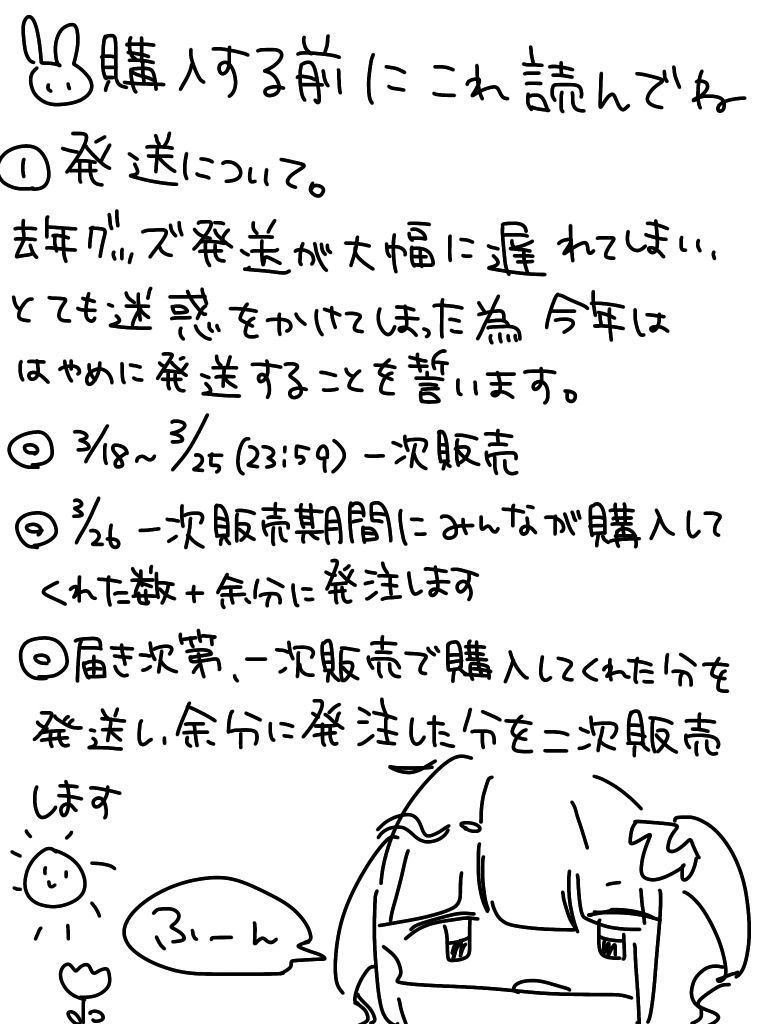 購入する前にこれ読んでね
① 発送について。
去年グッズ発送が大幅に遅れてしまい、
とても迷惑をかけてしまった為 今年は
はやめに発送することを誓います。
◎ 3/18~3/25(23:59)一次販売
◎ 3/26 一次販売期間にみんなが購入して
くれた数+余分に発注します
◎届き次第、一次販売で購入してくれた分を
発送し、余分に発注した分を二次販売
します
ふーん